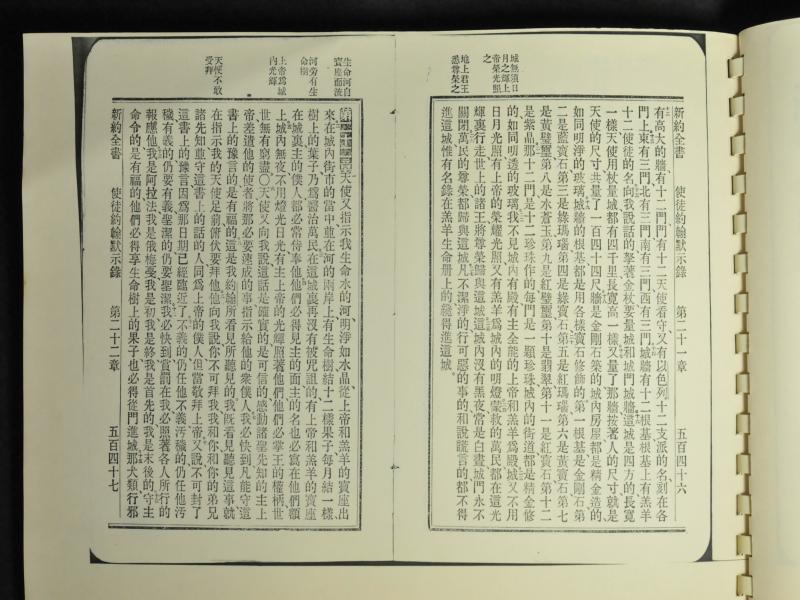 新約全書 使徒約翰默示錄 第二十一章 五百四十六
城無須日
月之輝上
帝榮光照
之
地上君王
悉尊榮之
有高大的牆有十二門門有十二天使看守又有以色列十二支派的名刻在各
門上東有三門北有三門南有三門西有三門城牆有十二根基根基上有羔羊
十二使徒的名向我說話的拏著金杖要量城和城門城牆這城是四方的長寬
一樣天使用杖量城都有四千里長寬高一樣又量了那牆按著人的尺寸就是
天使的尺寸共量了一百四十四尺牆是金剛石築的城內房屋都是精金造的
如同明淨的玻璃城牆的根基都是用各樣寶石修飾的第一根基是金剛石第
二是藍寶石第三是綠瑪瑙第四是綠寶石第五是紅瑪瑙第六是黃寶石第七
是黃璧璽第八是水蒼玉第九是紅璧璽第十是翡翠第十一是紅寶石第十二
是紫晶那十二門是十二珍珠作的每門是一顆珍珠城內的街道都是精金修
的如同明透的玻璃我不見城內有殿有主全能的上帝和羔羊爲殿城又不用
日月光照有上帝的榮耀光照又有羔羊爲城內的明燈蒙救的萬民都在這光
輝裏行走世上的諸王將尊榮歸與這城這城內沒有黑夜常是白晝城門永不
關閉萬民的尊榮都歸與這城凡不潔淨的行可惡的事的和說謊言的都不得
進這城惟有名錄在羔羊生命册上的纔得進這城
生命河自
寶座面流
河旁有生
命樹
上帝爲城
內光輝
天使不敢
受拜
天使又指示我生命水的河明淨如水晶從上帝和羔羊的寶座出
來在城內街市的當中並在河的兩岸上有生命樹結十二樣果子每月結一樣
樹上的葉子乃爲醫治萬民在這城裏再沒有被咒詛的有上帝和羔羊的寶座
在城裏主的僕人都必當侍奉他他們必得見主的面主的名也必寫在他們額
上城內無夜不用燈光日光有主上帝的光輝照著他們他們必掌王的權柄世
世無有窮盡○天使又向我說這話是確實的是可信的感動諸聖先知的主上
帝差遣他的使者將那必要速成的事指示給他的衆僕人我必快到凡能守這
書上的豫言的是有福的這是我約翰所看見所聽見的我旣看見聽見這事就
在指示我的天使足前俯伏要拜他他向我說你不可拜我我和你和你的弟兄
諸先知並守這書上的話的人同爲上帝的僕人但當敬拜上帝又說不可封了
這書上的豫言因爲那日期已經臨近了不義的仍任他不義汚穢的仍任他汚
穢有義的仍要有義聖潔的仍要聖潔我必快到賞罰在我必照著各人所行的
報應他我是阿拉法我是俄梅戛我是初我是終我是首先的我是末後的守主
命令的是有福的他們必得享生命樹上的果子也必得從門進城那犬類行邪
新約全書 使徒約翰默示錄 第二十二章 五百四十七